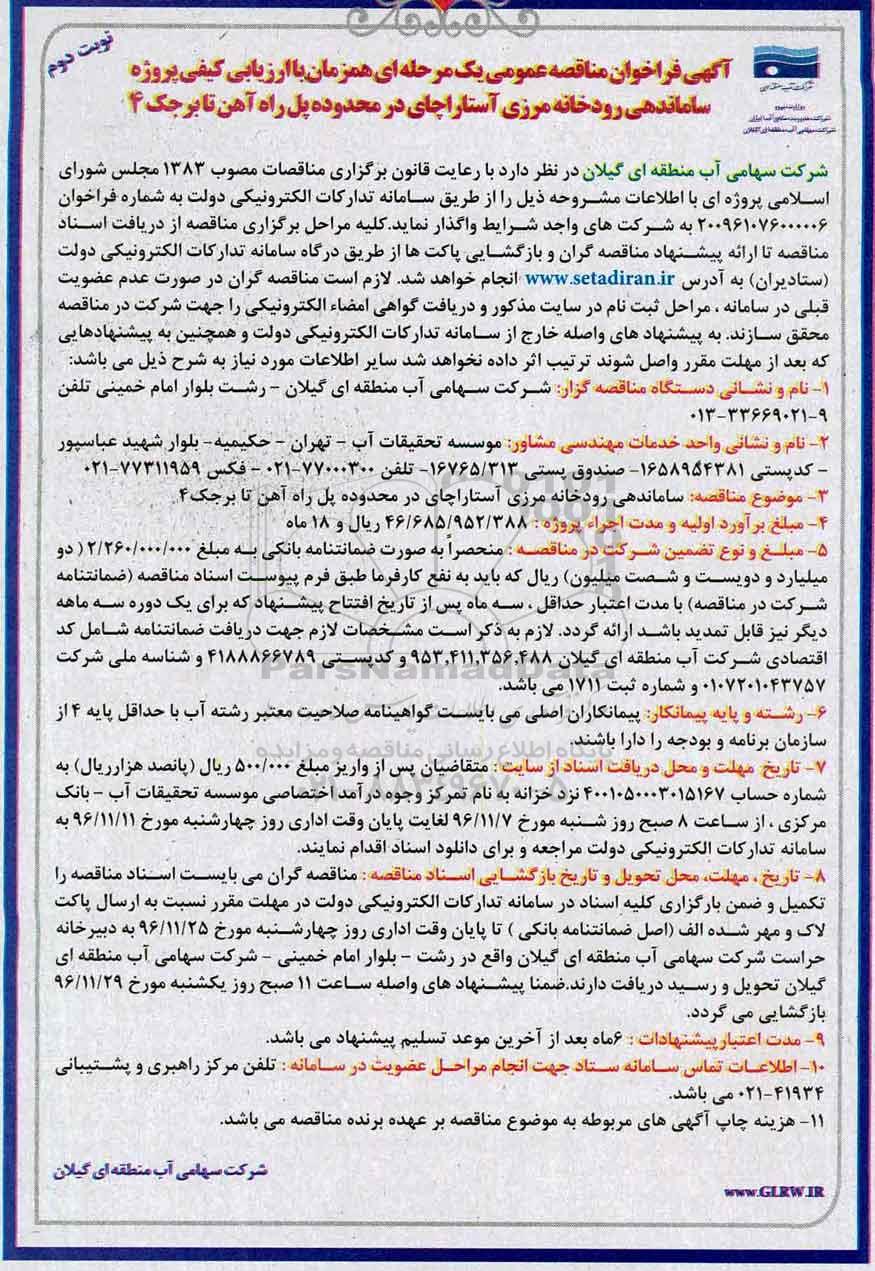 نوبت دوم
شرکت سهامی آب منطقه ای گیلان
آگهی فراخوان مناقصه عمومی یک مرحله ای همزمان با ارزیابی کیفی پروژه
ساماندهی رودخانه مرزی آستاراچای در محدوده پل راه آهن تا برجک ۴
شرکت سهامی آب منطقه ای گیلان در نظر دارد با رعایت قانون برگزاری مناقصات مصوب ۱۳۸۳ مجلس شورای
اسلامی پروژه ای با اطلاعات مشروحه ذیل را از طریق سامانه تدارکات الکترونیکی دولت به شماره فراخوان
۲۰۰۹۶۱۰۷۶۰۰۰۰۰۶ به شرکت های واجد شرایط واگذار نماید.کلیه مراحل برگزاری مناقصه از دریافت اسناد
مناقصه تا ارائه پیشنهاد مناقصه گران و بازگشایی پاکت ها از طریق درگاه سامانه تدارکات الکترونیکی دولت
(ستادیران) به آدرس www.setadiran.ir انجام خواهد شد. لازم است مناقصه گران در صورت عدم عضویت
قبلی در سامانه ، مراحل ثبت نام در سایت مذکور و دریافت گواهی امضاء الکترونیکی را جهت شرکت در مناقصه
محقق سازند. به پیشنهاد های واصله خارج از سامانه تدارکات الکترونیکی دولت و همچنین به پیشنهادهایی
که بعد از مهلت مقرر واصل شوند ترتیب اثر داده نخواهد شد سایر اطلاعات مورد نیاز به شرح ذیل می باشد:
۱- نام و نشانی دستگاه مناقصه گزار: شرکت سهامی آب منطقه ای گیلان - رشت بلوار امام خمینی تلفن
۰۱۳-۳۳۶۶۹۰۲۱-۹
۲- نام و نشانی واحد خدمات مهندسی مشاور: موسسه تحقیقات آب - تهران - حکیمیه- بلوار شهید عباسپور
- کدپستی ۱۶۵۸۹۵۴۳۸۱- صندوق پستی ۱۶۷۶۵/۳۱۳- تلفن ۷۷۰۰۰۳۰۰-۰۲۱ - فکس ۷۷۳۱۱۹۵۹-۰۲۱
۳- موضوع مناقصه: ساماندهی رودخانه مرزی آستاراچای در محدوده پل راه آهن تا برجک۴
۴- مبلغ برآورد اولیه و مدت اجراء پروژه : ۴۶/۶۸۵/۹۵۲/۳۸۸ ریال و ۱۸ ماه
۵- مبلغ و نوع تضمین شرکت در مناقصه : منحصراً به صورت ضمانتنامه بانکی به مبلغ ۲/۲۶۰/۰۰۰/۰۰۰ ( دو
میلیارد و دویست و شصت میلیون) ریال که باید به نفع کارفرما طبق فرم پیوست اسناد مناقصه (ضمانتنامه
شرکت در مناقصه) با مدت اعتبار حداقل ، سه ماه پس از تاریخ افتتاح پیشنهاد که برای یک دوره سه ماهه
دیگر نیز قابل تمدید باشد ارائه گردد. لازم به ذکر است مشخصات لازم جهت دریافت ضمانتنامه شامل کد
اقتصادی شرکت آب منطقه ای گیلان ۹۵۳,۴۱۱,۳۵۶,۴۸۸ و کدپستی ۴۱۸۸۸۶۶۷۸۹ و شناسه ملی شرکت
۰۱۰۷۲۰۱۰۴۳۷۵۷ و شماره ثبت ۱۷۱۱ می باشد.
ParsNamadData
۶- رشته و پایه پیمانکار: پیمانکاران اصلی می بایست گواهینامه صلاحیت معتبر رشته آب با حداقل پایه ۴ از
سازمان برنامه و بودجه را دارا باشند.
پایگاه اطلاع رسانی مناقصه و مزایده
۷- تاریخ مهلت و محل دریافت اسناد از سایت : متقاضیان پس از واریز مبلغ ۵۰۰/۰۰۰ ریال (پانصد هزارریال) به
شماره حساب ۴۰۰۱۰۵۰۰۰۳۰۱۵۱۶۷ نزد خزانه به نام تمرکز وجوه درآمد اختصاصی موسسه تحقیقات آب - بانک
مرکزی ، از ساعت ۸ صبح روز شنبه مورخ ۹۶/۱۱/۷ لغایت پایان وقت اداری روز چهارشنبه مورخ ۹۶/۱۱/۱۱ به
سامانه تدارکات الکترونیکی دولت مراجعه و برای دانلود اسناد اقدام نمایند.
۸- تاریخ ، مهلت، محل تحویل و تاریخ بازگشایی اسناد مناقصه : مناقصه گران می بایست اسناد مناقصه را
تکمیل و ضمن بارگزاری کلیه اسناد در سامانه تدارکات الکترونیکی دولت در مهلت مقرر نسبت به ارسال پاکت
لاک و مهر شده الف (اصل ضمانتنامه بانکی ) تا پایان وقت اداری روز چهارشنبه مورخ ۹۶/۱۱/۲۵ به دبیرخانه
حراست شرکت سهامی آب منطقه ای گیلان واقع در رشت - بلوار امام خمینی - شرکت سهامی آب منطقه ای
گیلان تحویل و رسید دریافت دارند.ضمنا پیشنهاد های واصله ساعت ۱۱ صبح روز یکشنبه مورخ ۹۶/۱۱/۲۹
بازگشایی می گردد.
۹- مدت اعتبار پیشنهادات : ۶ماه بعد از آخرین موعد تسلیم پیشنهاد می باشد.
۱۰- اطلاعات تماس سامانه ستاد جهت انجام مراحل عضویت در سامانه : تلفن مرکز راهبری و پشتیبانی
۰۲۱-۴۱۹۳۴ می باشد.
۱۱- هزینه چاپ آگهی های مربوطه به موضوع مناقصه بر عهده برنده مناقصه می باشد.
شرکت سهامی آب منطقه ای گیلان
www.GLRW.IR